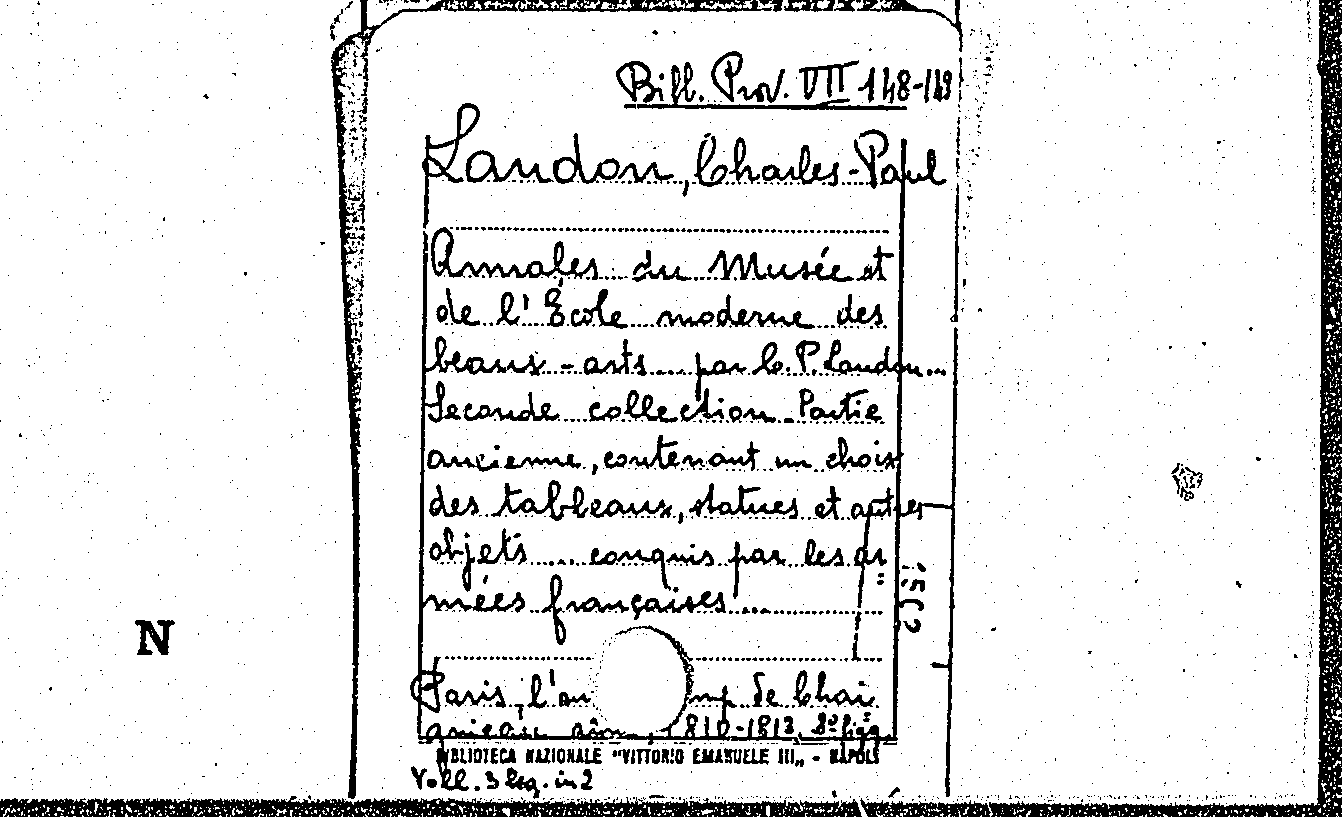 Bibl. Prov. VII 148-149
Landon, Charles-Paul
Annales du Musée et
de l'École moderne des
beaux-arts... par C. P. Landon...
Seconde collection. Partie
ancienne, contenant un choix
des tableaux, statues et autres
objets ... conquis par les ar
mées françaises ...
N
Paris, l'au mp de Chai
gnieau aîné, 1810-1813. 8º figg.
BIBLIOTECA NAZIONALE "VITTORIO EMANUELE III" - NAPOLI
Voll. 3 leg. in 2